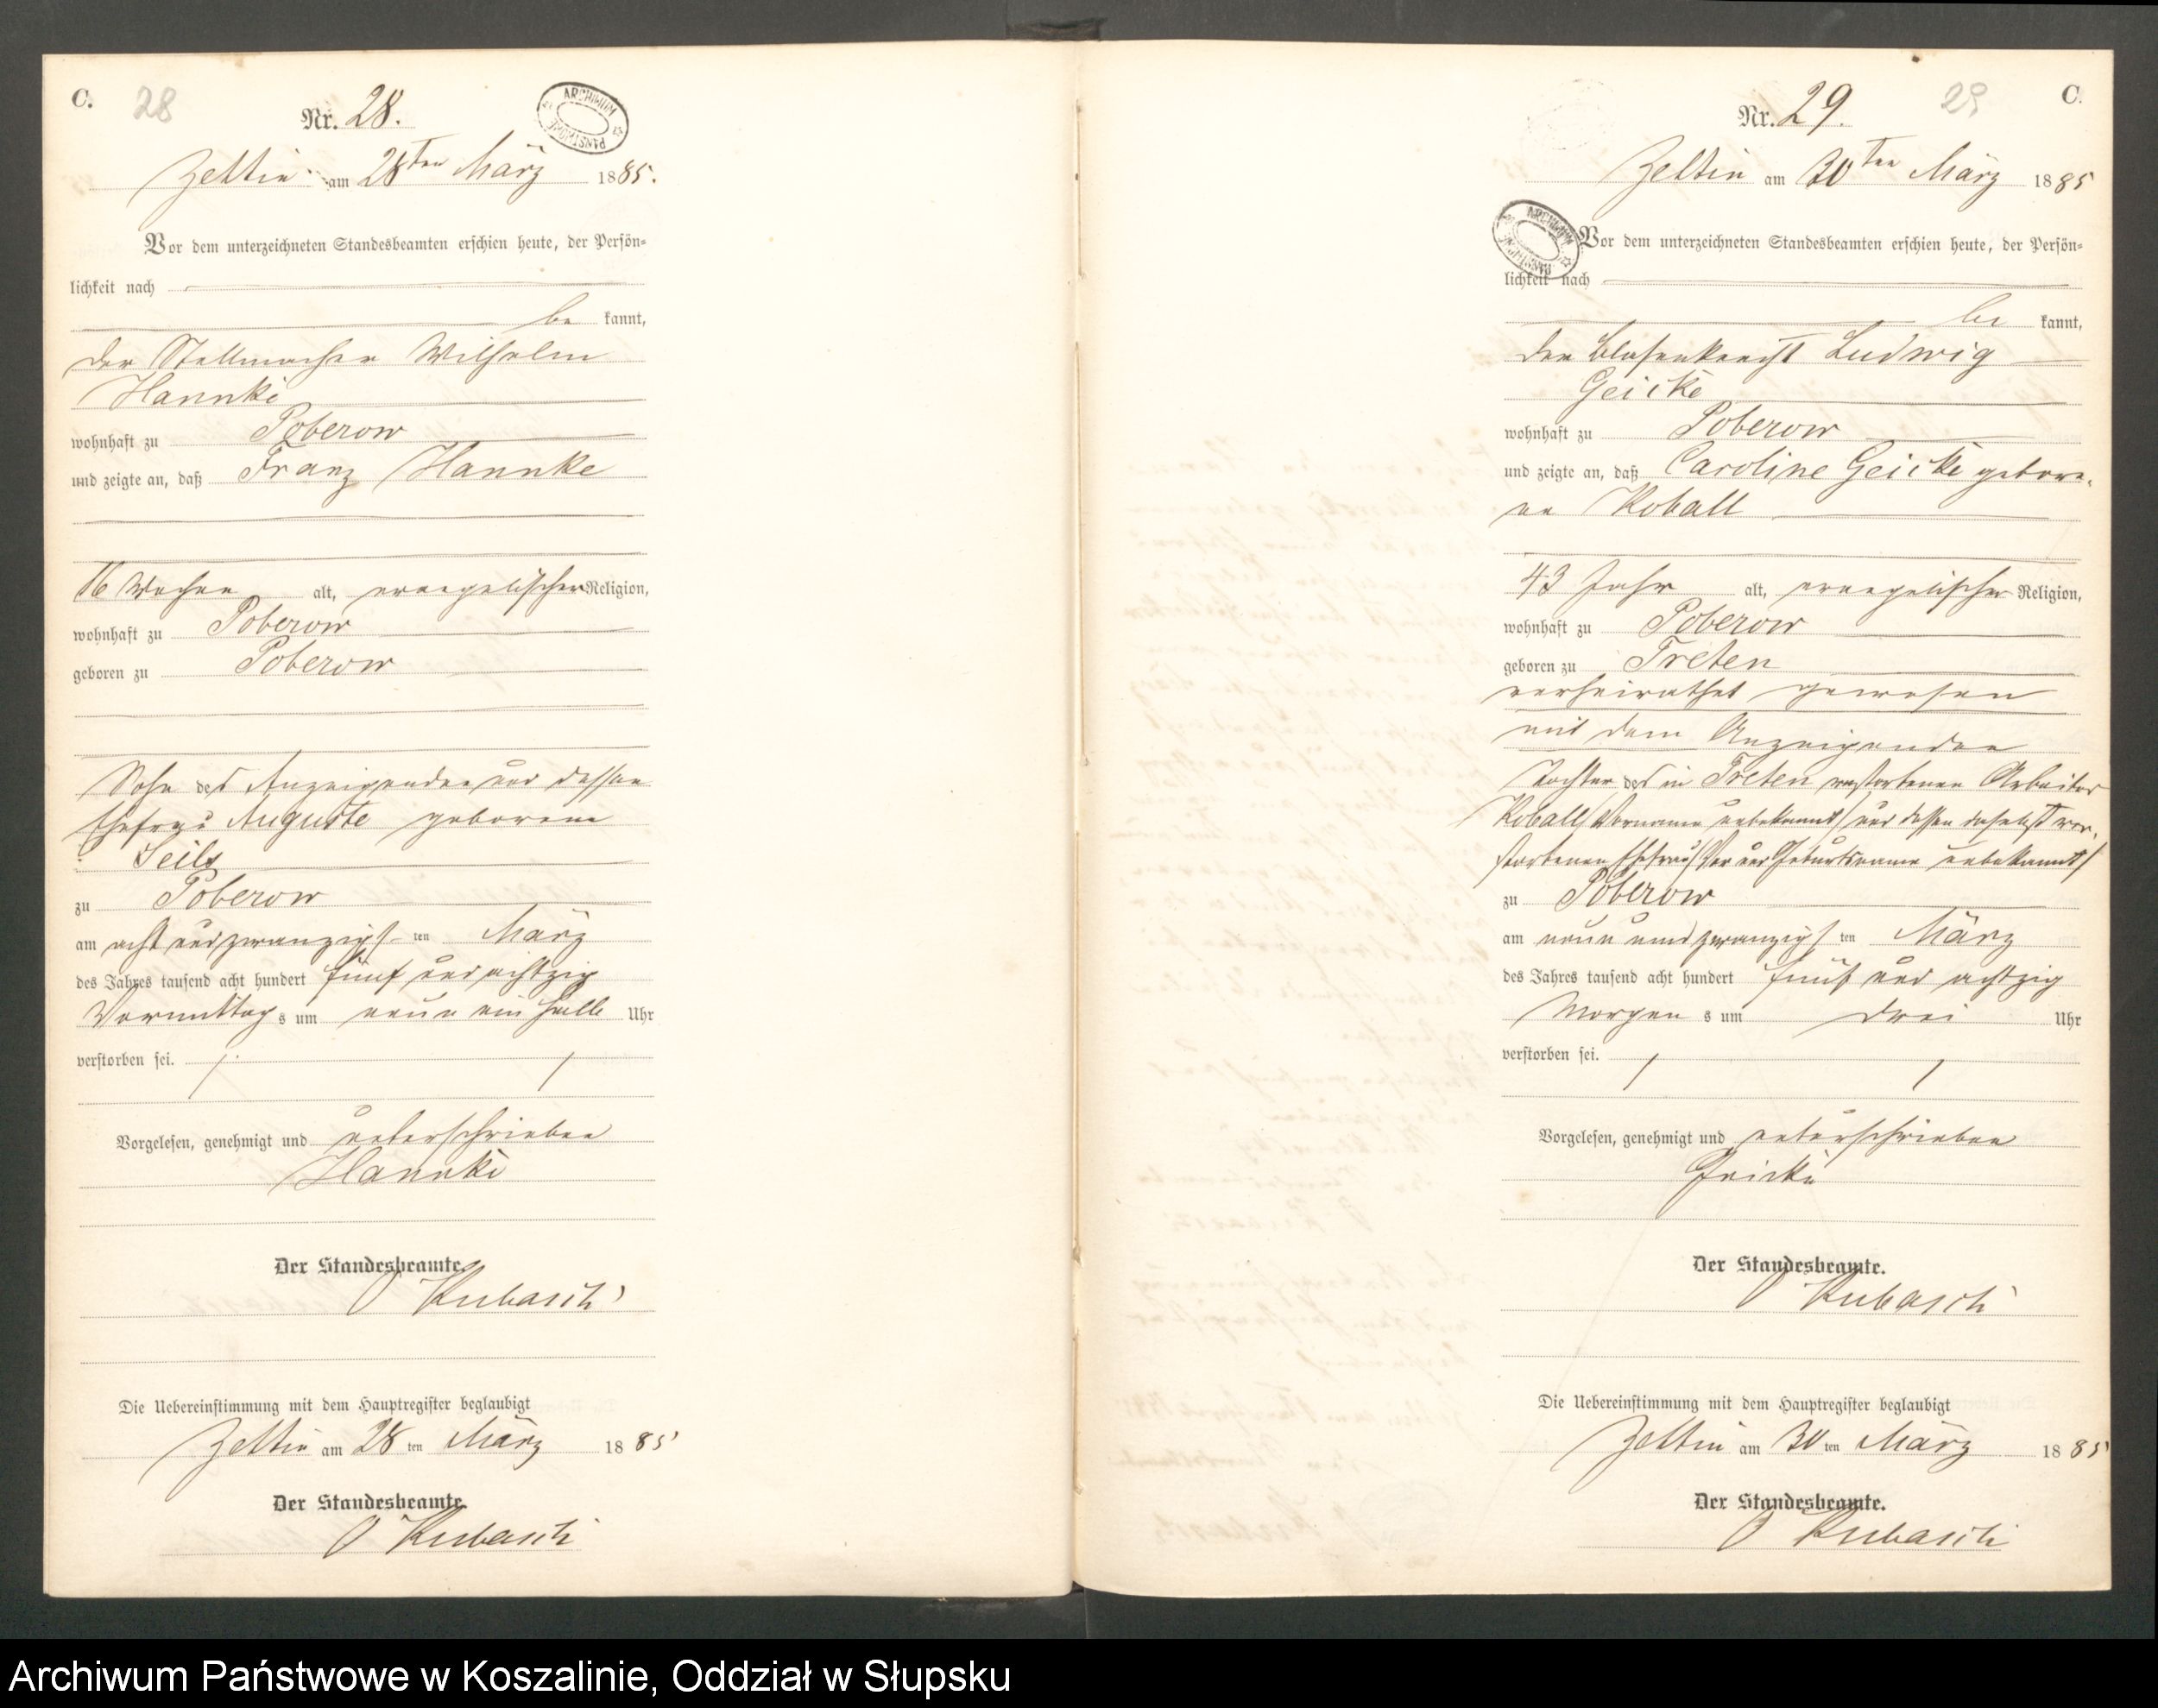 C. 28
Nr. 28.
ARCHIWUM PAŃSTWOWE
Zettin am 28ten März 1885.
Vor dem unterzeichneten Standesbeamten erschien heute, der Persön-
lichkeit nach
be kannt,
der Stellmacher Wilhelm
Hannke
wohnhaft zu Poberow
und zeigte an, daß Franz Hannke
16 Wochen alt, evangelischer Religion,
wohnhaft zu Poberow
geboren zu Poberow
Sohn des Anzeigenden und dessen
Ehefrau Auguste geborene
Seils
zu Poberow
am acht und zwanzigs ten März
des Jahres tausend acht hundert fünf und achtzig
Vormittag s um neun ein halb Uhr
verstorben sei.
Vorgelesen, genehmigt und unterschrieben
Hannke
Der Standesbeamte.
Kubasch
Die Uebereinstimmung mit dem Hauptregister beglaubigt
Zettin am 28 ten März 1885
Der Standesbeamte.
Kubasch
29 C.
Nr. 29.
Zettin am 30ten März 1885
ARCHIWUM PAŃSTWOWE
Vor dem unterzeichneten Standesbeamten erschien heute, der Persön-
lichkeit nach
be kannt,
der Ludwig
Geicke
wohnhaft zu Poberow
und zeigte an, daß Caroline Geicke gebore-
ne Koball
43 Jahr alt, evangelischer Religion,
wohnhaft zu Poberow
geboren zu Treten
verheirathet gewesen
mit dem Anzeigenden
Tochter des in Treten verstorbenen Arbeiter
Koball /Vorname unbekannt/ und dessen daselbst ver-
storbenen Ehefrau /Vor und Geburtsname unbekannt/
zu Poberow
am neun und zwanzigs ten März
des Jahres tausend acht hundert fünf und achtzig
Morgen s um drei Uhr
verstorben sei.
Vorgelesen, genehmigt und unterschrieben
Geicke
Der Standesbeamte.
Kubasch
Die Uebereinstimmung mit dem Hauptregister beglaubigt
Zettin am 30 ten März 1885
Der Standesbeamte.
Kubasch
Archiwum Państwowe w Koszalinie, Oddział w Słupsku